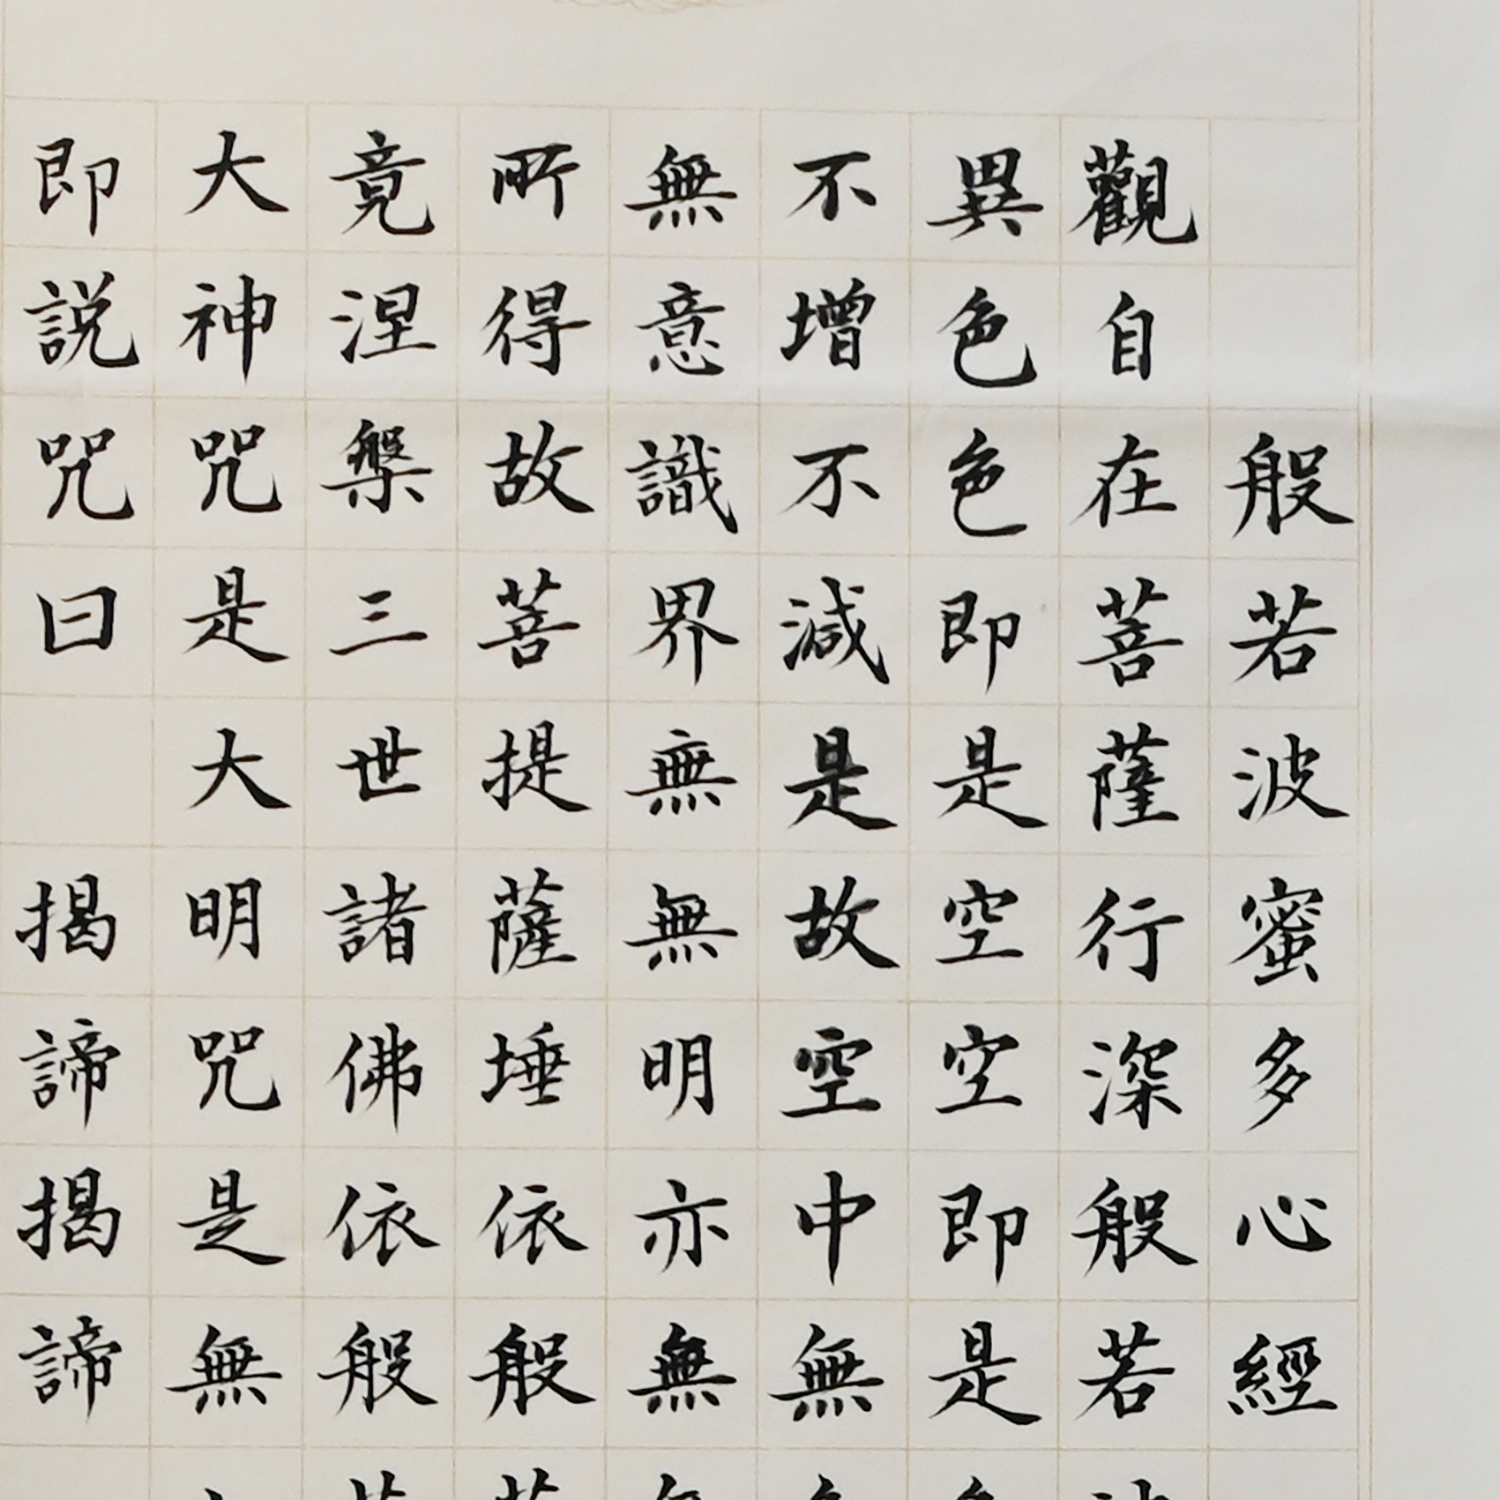 般若波蜜多心經
觀自在菩薩行深般若
異色色即是空空即是
不增不減是故空中無
無意識界無無明亦無
所得故菩提薩埵依般
竟涅槃三世諸佛依般
大神咒是大明咒是無
即説咒曰 揭諦揭諦